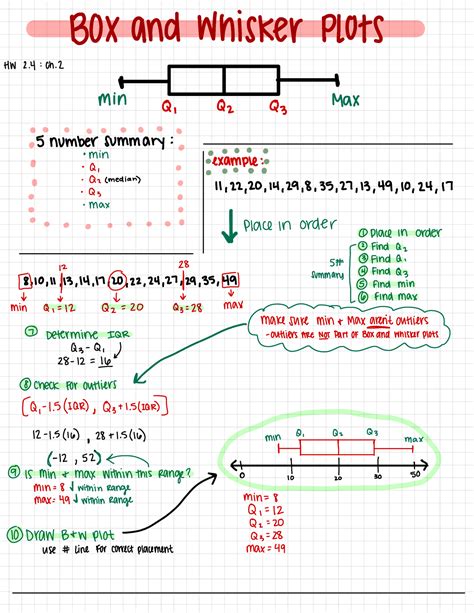 Box and Whisker Plots
HW 2.4 : Ch.2
min Q1 Q2 Q3 Max
5 number summary:
• min
• Q1
• Q2 (median)
• Q3
• max
example:
11, 22, 20, 14, 29, 8, 35, 27, 13, 49, 10, 24, 17
Place in order
① Place in order
② Find Q2
③ Find Q1
④ Find Q3
⑤ Find min
⑥ Find max
5## summary
12 28
8, 10, 11, 13, 14, 17, 20, 22, 24, 27, 29, 35, 49
min Q1 = 12 Q2 = 20 Q3 = 28 max
make sure min & Max aren't outliers
- outliers are Not Part of Box and Whisker plots
⑦ Determine IQR
Q3 - Q1
28 - 12 = 16
⑧ Check for outliers
[Q1 - 1.5(IQR), Q3 + 1.5(IQR)]
12 - 1.5(16), 28 + 1.5(16)
(-12, 52)
⑨ Is min & max within this range?
min = 8 ↓ within range
max = 49 ↓ within range
min Q1 Q2 Q3 max
0 10 20 30 50
min = 8
Q1 = 12
Q2 = 20
Q3 = 28
max = 49
⑩ Draw B&W plot
use # line for correct placement